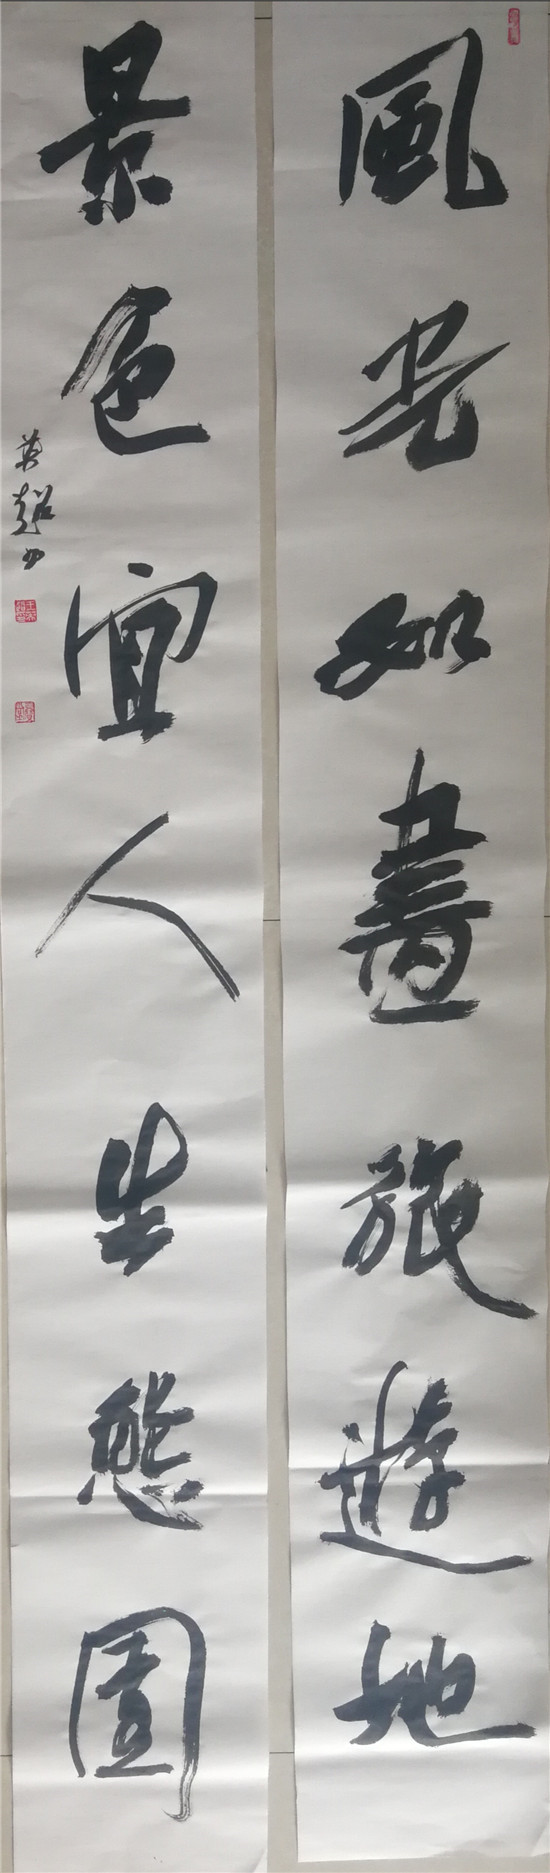 風光如畫旅遊地
景色宜人生態園
英超书